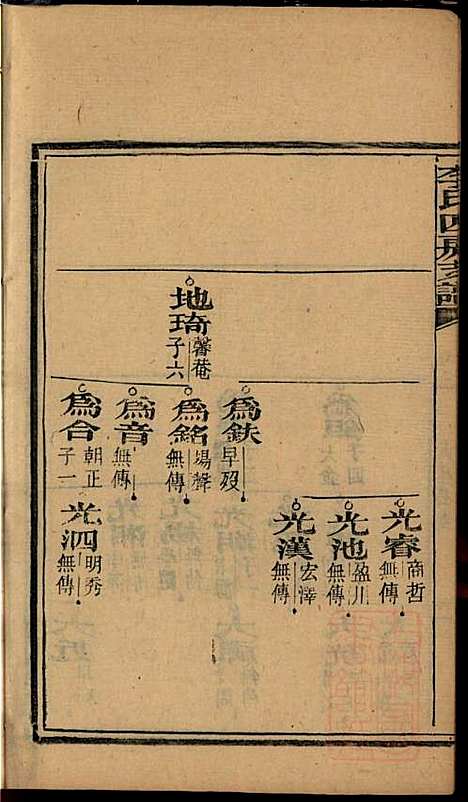 李氏四房支譜
地琦
馨菴
子六
為鉄
早歿
為銘
場聲
無傳
為音
無傳
為合
朝正
子一
光睿
商哲
無傳
光池
盈川
無傳
光漢
宏澤
無傳
光泗
明秀
無傳